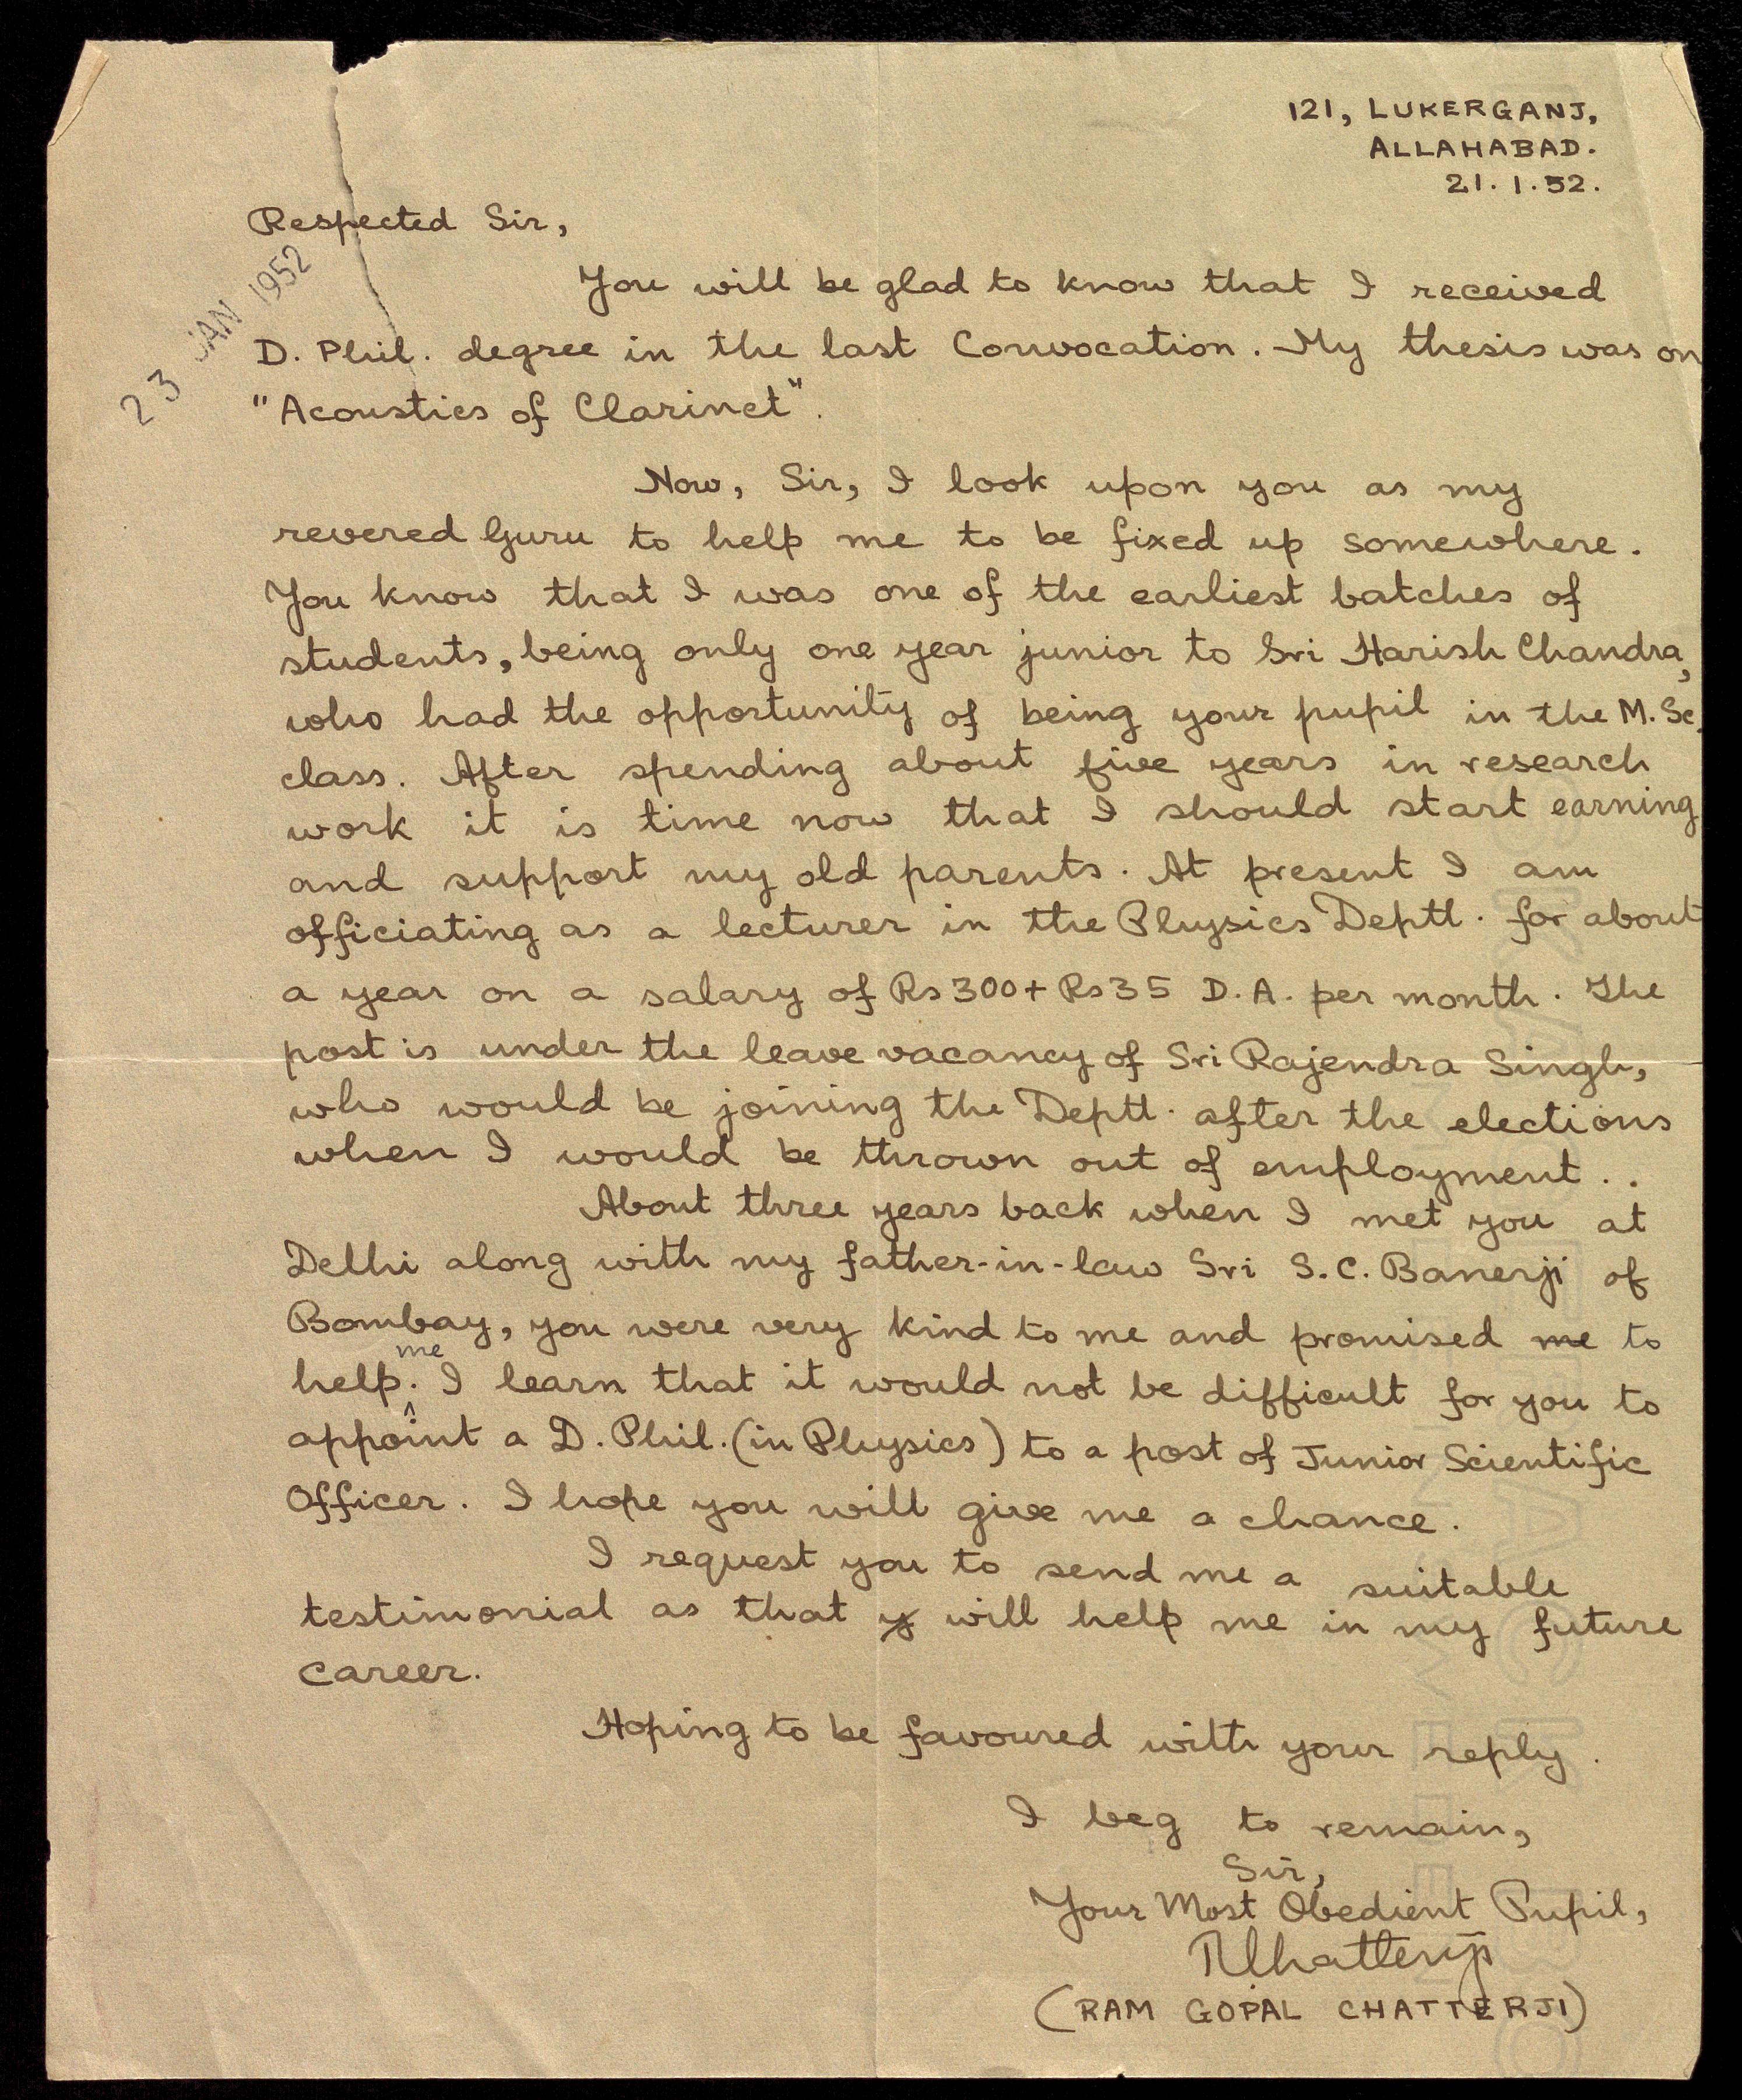 121, LUKERGANJ,
ALLAHABAD.
21.1.52.
Respected Sir,
23 JAN 1952
You will be glad to know that I received
D. Phil. degree in the last Convocation. My thesis was on
"Acoustics of Clarinet".
Now, Sir, I look upon you as my
revered Guru to help me to be fixed up somewhere.
You know that I was one of the earliest batches of
students, being only one year junior to Sri Harish Chandra,
who had the opportunity of being your pupil in the M. Sc.
class. After spending about five years in research
work it is time now that I should start earning
and support my old parents. At present I am
officiating as a lecturer in the Physics Deptt. for about
a year on a salary of Rs 300 + Rs 35 D.A. per month. The
post is under the leave vacancy of Sri Rajendra Singh,
who would be joining the Deptt. after the elections
when I would be thrown out of employment..
About three years back when I met you at
Delhi along with my father-in-law Sri S.C. Banerji of
Bombay, you were very kind to me and promised me to
help me. I learn that it would not be difficult for you to
appoint a D. Phil. (in Physics) to a post of Junior Scientific
Officer. I hope you will give me a chance.
I request you to send me a suitable
testimonial as that will help me in my future
career.
Hoping to be favoured with your reply.
I beg to remain,
Sir,
Your Most Obedient Pupil,
RChatterji
(RAM GOPAL CHATTERJI)